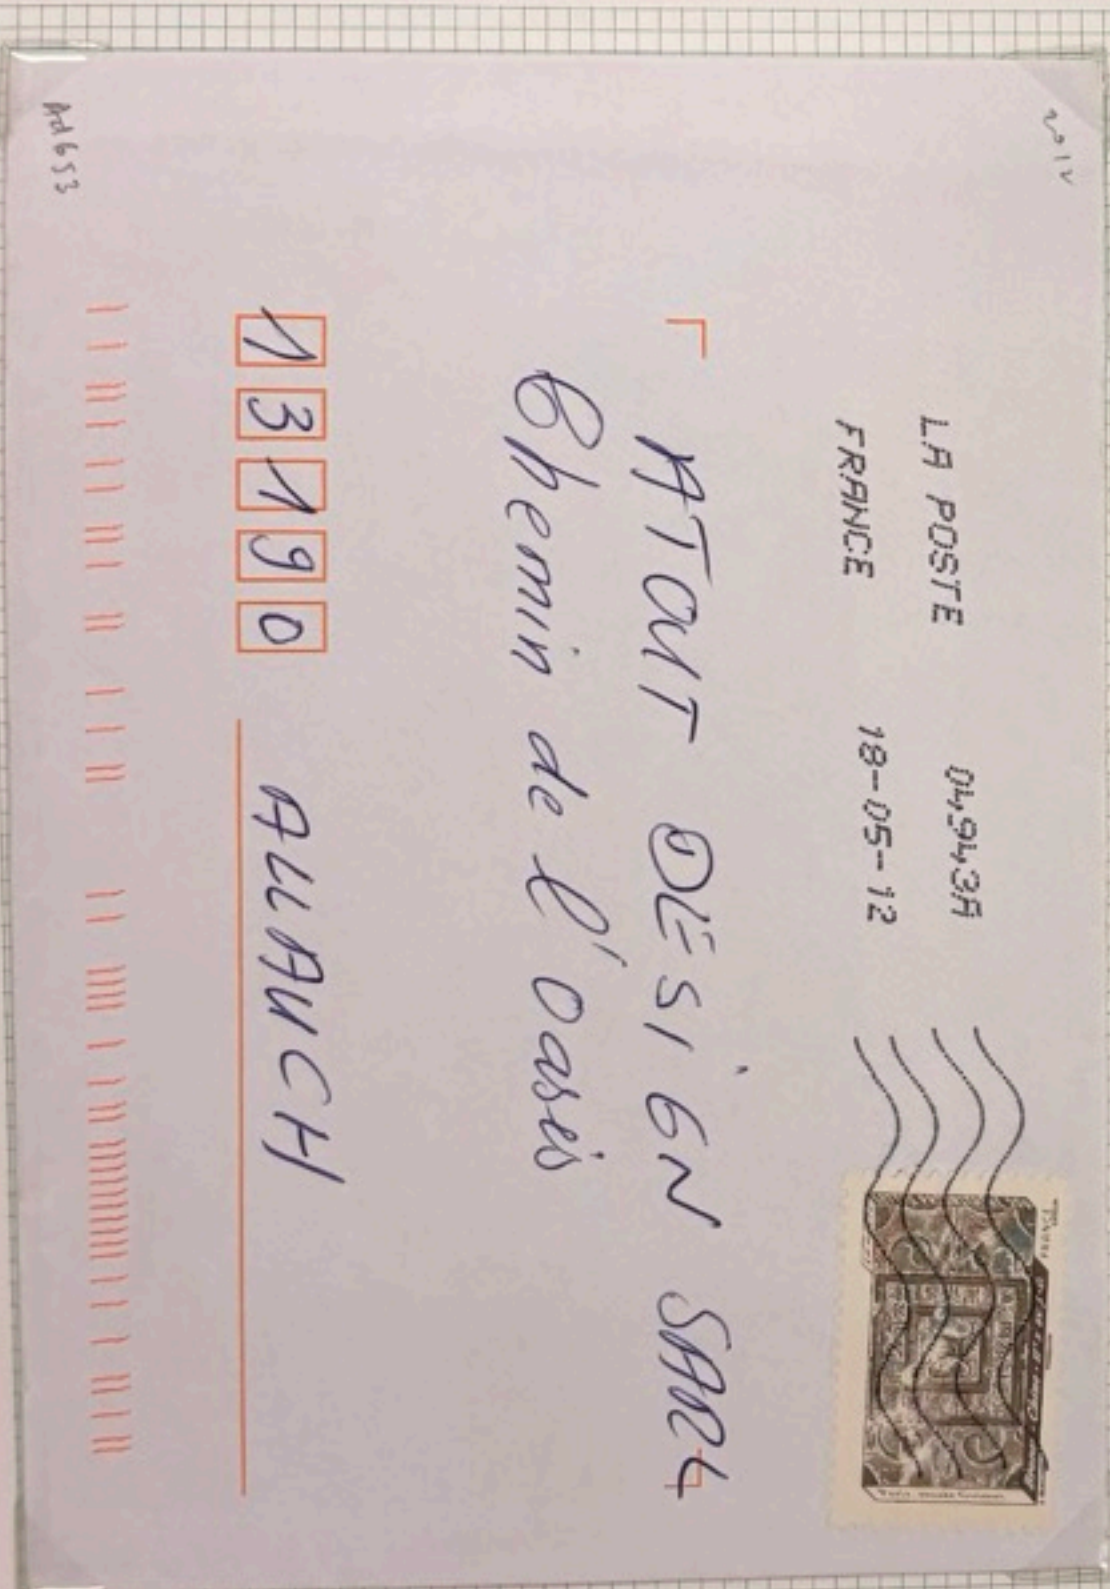 2012
LA POSTE 04943A
FRANCE 18-05-12
ATOUT DÉSIGN SARL
Chemin de l'Oasis
13190 ALLAUCH
Ad653